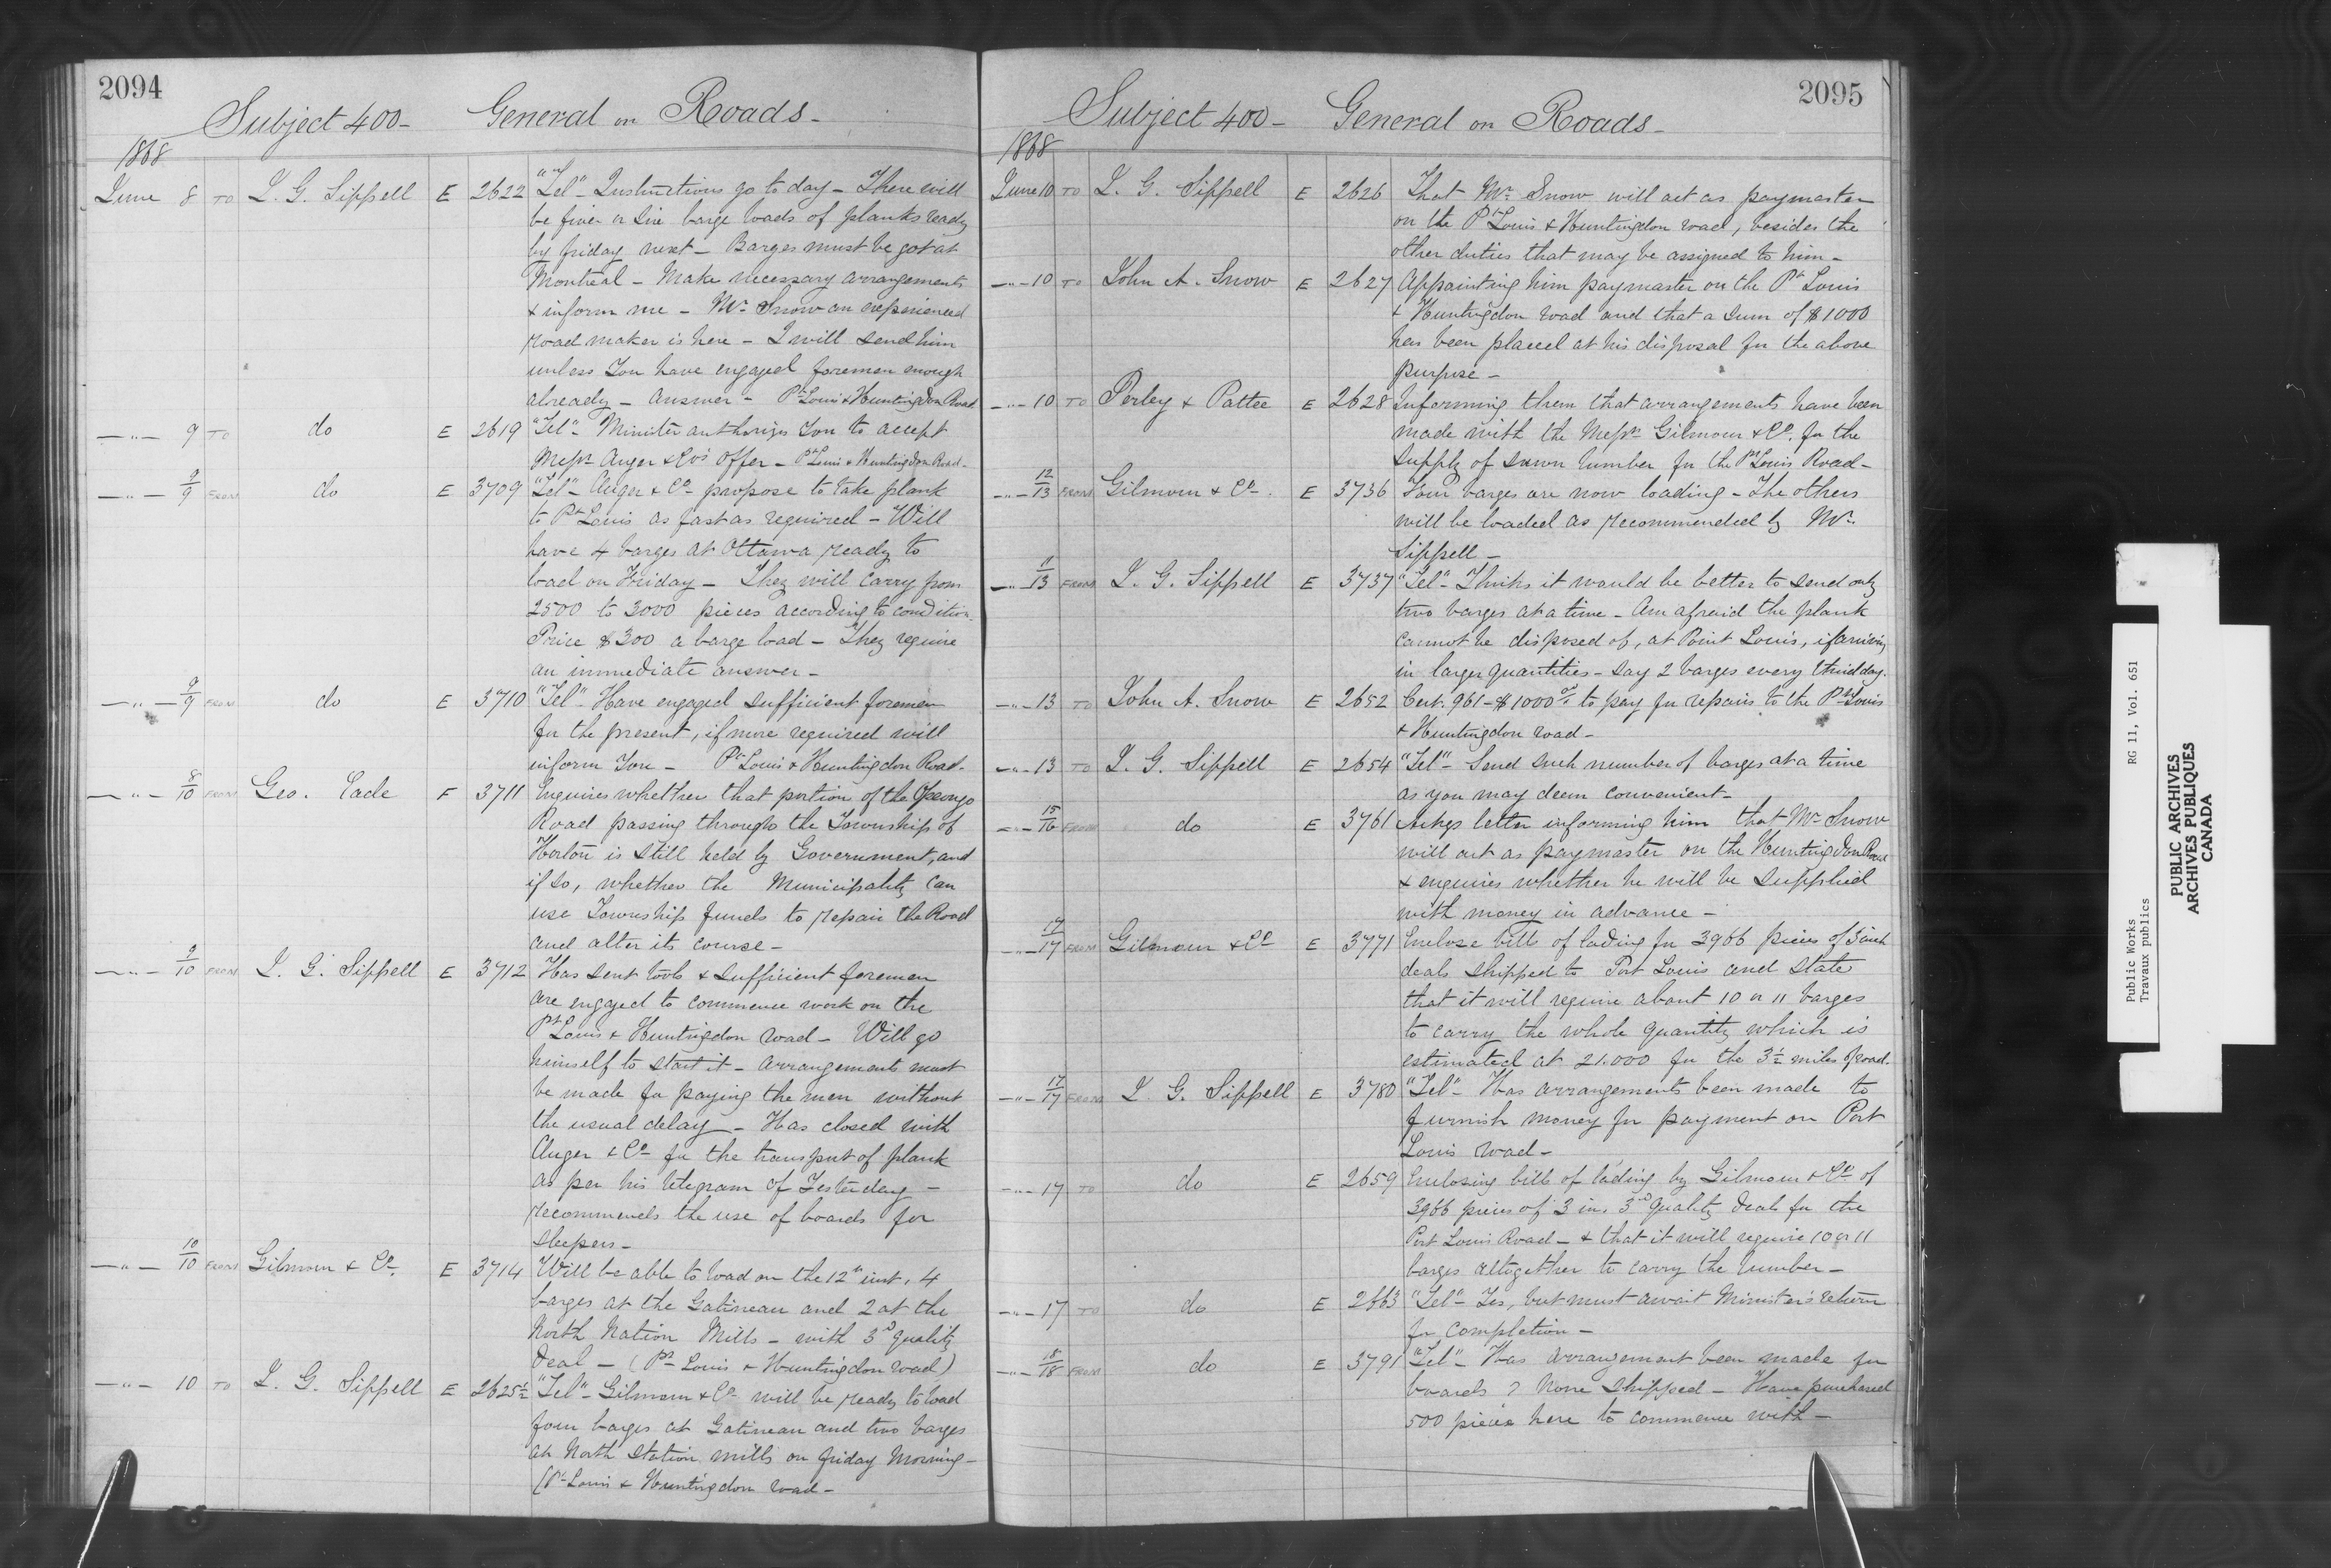 2094
Subject 400- General on Roads-
1868
June 8 TO L. G. Sippell E 2622 "Tel"- Instructions go to day - There will
be five or six barge loads of planks ready
by friday next - Barges must be got at
Montreal - Make necessary arrangements
& inform me - Mr Snow an experienced
road maker is here - I will send him
unless you have engaged foremen enough
already - Answer - Pt Louis & Huntingdon Road
—"— 9 TO do E 2619 "Tel"- Minister authorizes you to accept
Messrs Auger & Co's offer - Pt Louis & Huntingdon Road-
—"— 9/9 FROM do E 3709 "Tel"- Auger & Co propose to take plank
to Pt Louis as fast as required - Will
have 4 barges at Ottawa ready to
load on Friday - They will carry from
2500 to 3000 pieces according to condition.
Price $300 a barge load - They require
an immediate answer -
—"— 9/9 FROM do E 3710 "Tel"- Have engaged sufficient foremen
for the present, if more required will
inform you - Pt Louis & Huntingdon Road-
—"— 8/10 FROM Geo. Eade F 3711 Enquires whether that portion of the Opeongo
Road passing through the Township of
Horton is still held by Government, and
if so, whether the Municipality can
use Township funds to repair the Road
and alter its course -
—"— 9/10 FROM L. G. Sippell E 3712 Has sent tools & sufficient foremen
are engaged to commence work on the
Pt Louis & Huntingdon road - Will go
himself to start it - arrangements must
be made for paying the men without
the usual delay - Has closed with
Auger & Co for the transport of plank
as per his telegram of Yesterday -
recommends the use of boards for
sleepers -
—"— 10/10 FROM Gilmour & Co. E 3714 Will be able to load on the 12th inst, 4
barges at the Gatineau and 2 at the
North Nation Mills - with 3d quality
deal - (Pt Louis & Huntingdon road)
—"— 10 TO L. G. Sippell E 2625½ "Tel"- Gilmour & Co will be ready to load
four barges at Gatineau and two barges
at North Station mills on friday morning -
(Pt Louis & Huntingdon road -
2095
Subject 400- General on Roads-
1868
June 10 TO L. G. Sippell E 2626 That Mr Snow will act as paymaster
on the Pt Louis & Huntingdon road, besides the
other duties that may be assigned to him -
—"— 10 TO John A. Snow E 2627 Appointing him paymaster on the Pt Louis
& Huntingdon road and that a sum of $1000
has been placed at his disposal for the above
purpose -
—"— 10 TO Perley & Pattee E 2628 Informing them that arrangements have been
made with the Messrs Gilmour & Co. for the
supply of sawn lumber for the Pt Louis Road -
—"— 12/13 FROM Gilmour & Co. E 3736 Four barges are now loading - The others
will be loaded as recommended by Mr.
Sippell -
—"— 11/13 FROM L. G. Sippell E 3737 "Tel"- Thinks it would be better to send only
two barges at a time - Am afraid the plank
cannot be disposed of, at Point Louis, if arriving
in larger quantities - say 2 barges every third day.
—"— 13 TO John A. Snow E 2652 Cert. 961 - $1000 to pay for repairs to the Pt Louis
& Huntingdon road -
—"— 13 TO L. G. Sippell E 2654 "Tel"- Send such number of barges at a time
as you may deem convenient -
—"— 15/16 FROM do E 3761 Ackgs letter informing him that Mr Snow
will act as paymaster on the Huntingdon Road
& enquires whether he will be supplied
with money in advance -
—"— 17/17 FROM Gilmour & Co E 3771 Enclose bills of lading for 3966 pieces of 3 inch
deals shipped to Port Louis and state
that it will require about 10 or 11 barges
to carry the whole quantity which is
estimated at 21.000 for the 3½ miles of road.
—"— 17/17 FROM L. G. Sippell E 3780 "Tel"- Has arrangements been made to
furnish money for payment on Port
Louis road -
—"— 17 TO do E 2659 Enclosing bills of lading by Gilmour & Co of
3966 pieces of 3 in. 3d quality deals for the
Port Louis Road - & that it will require 10 or 11
barges altogether to carry the lumber -
—"— 17 TO do E 2663 "Tel"- Yes, but must await Minister's return
for completion -
—"— 18/18 FROM do E 3791 "Tel"- Has arrangement been made for
boards ? None shipped - Have purchased
500 pieces here to commence with -
Public Works RG 11, Vol. 651
Travaux publics
PUBLIC ARCHIVES
ARCHIVES PUBLIQUES
CANADA